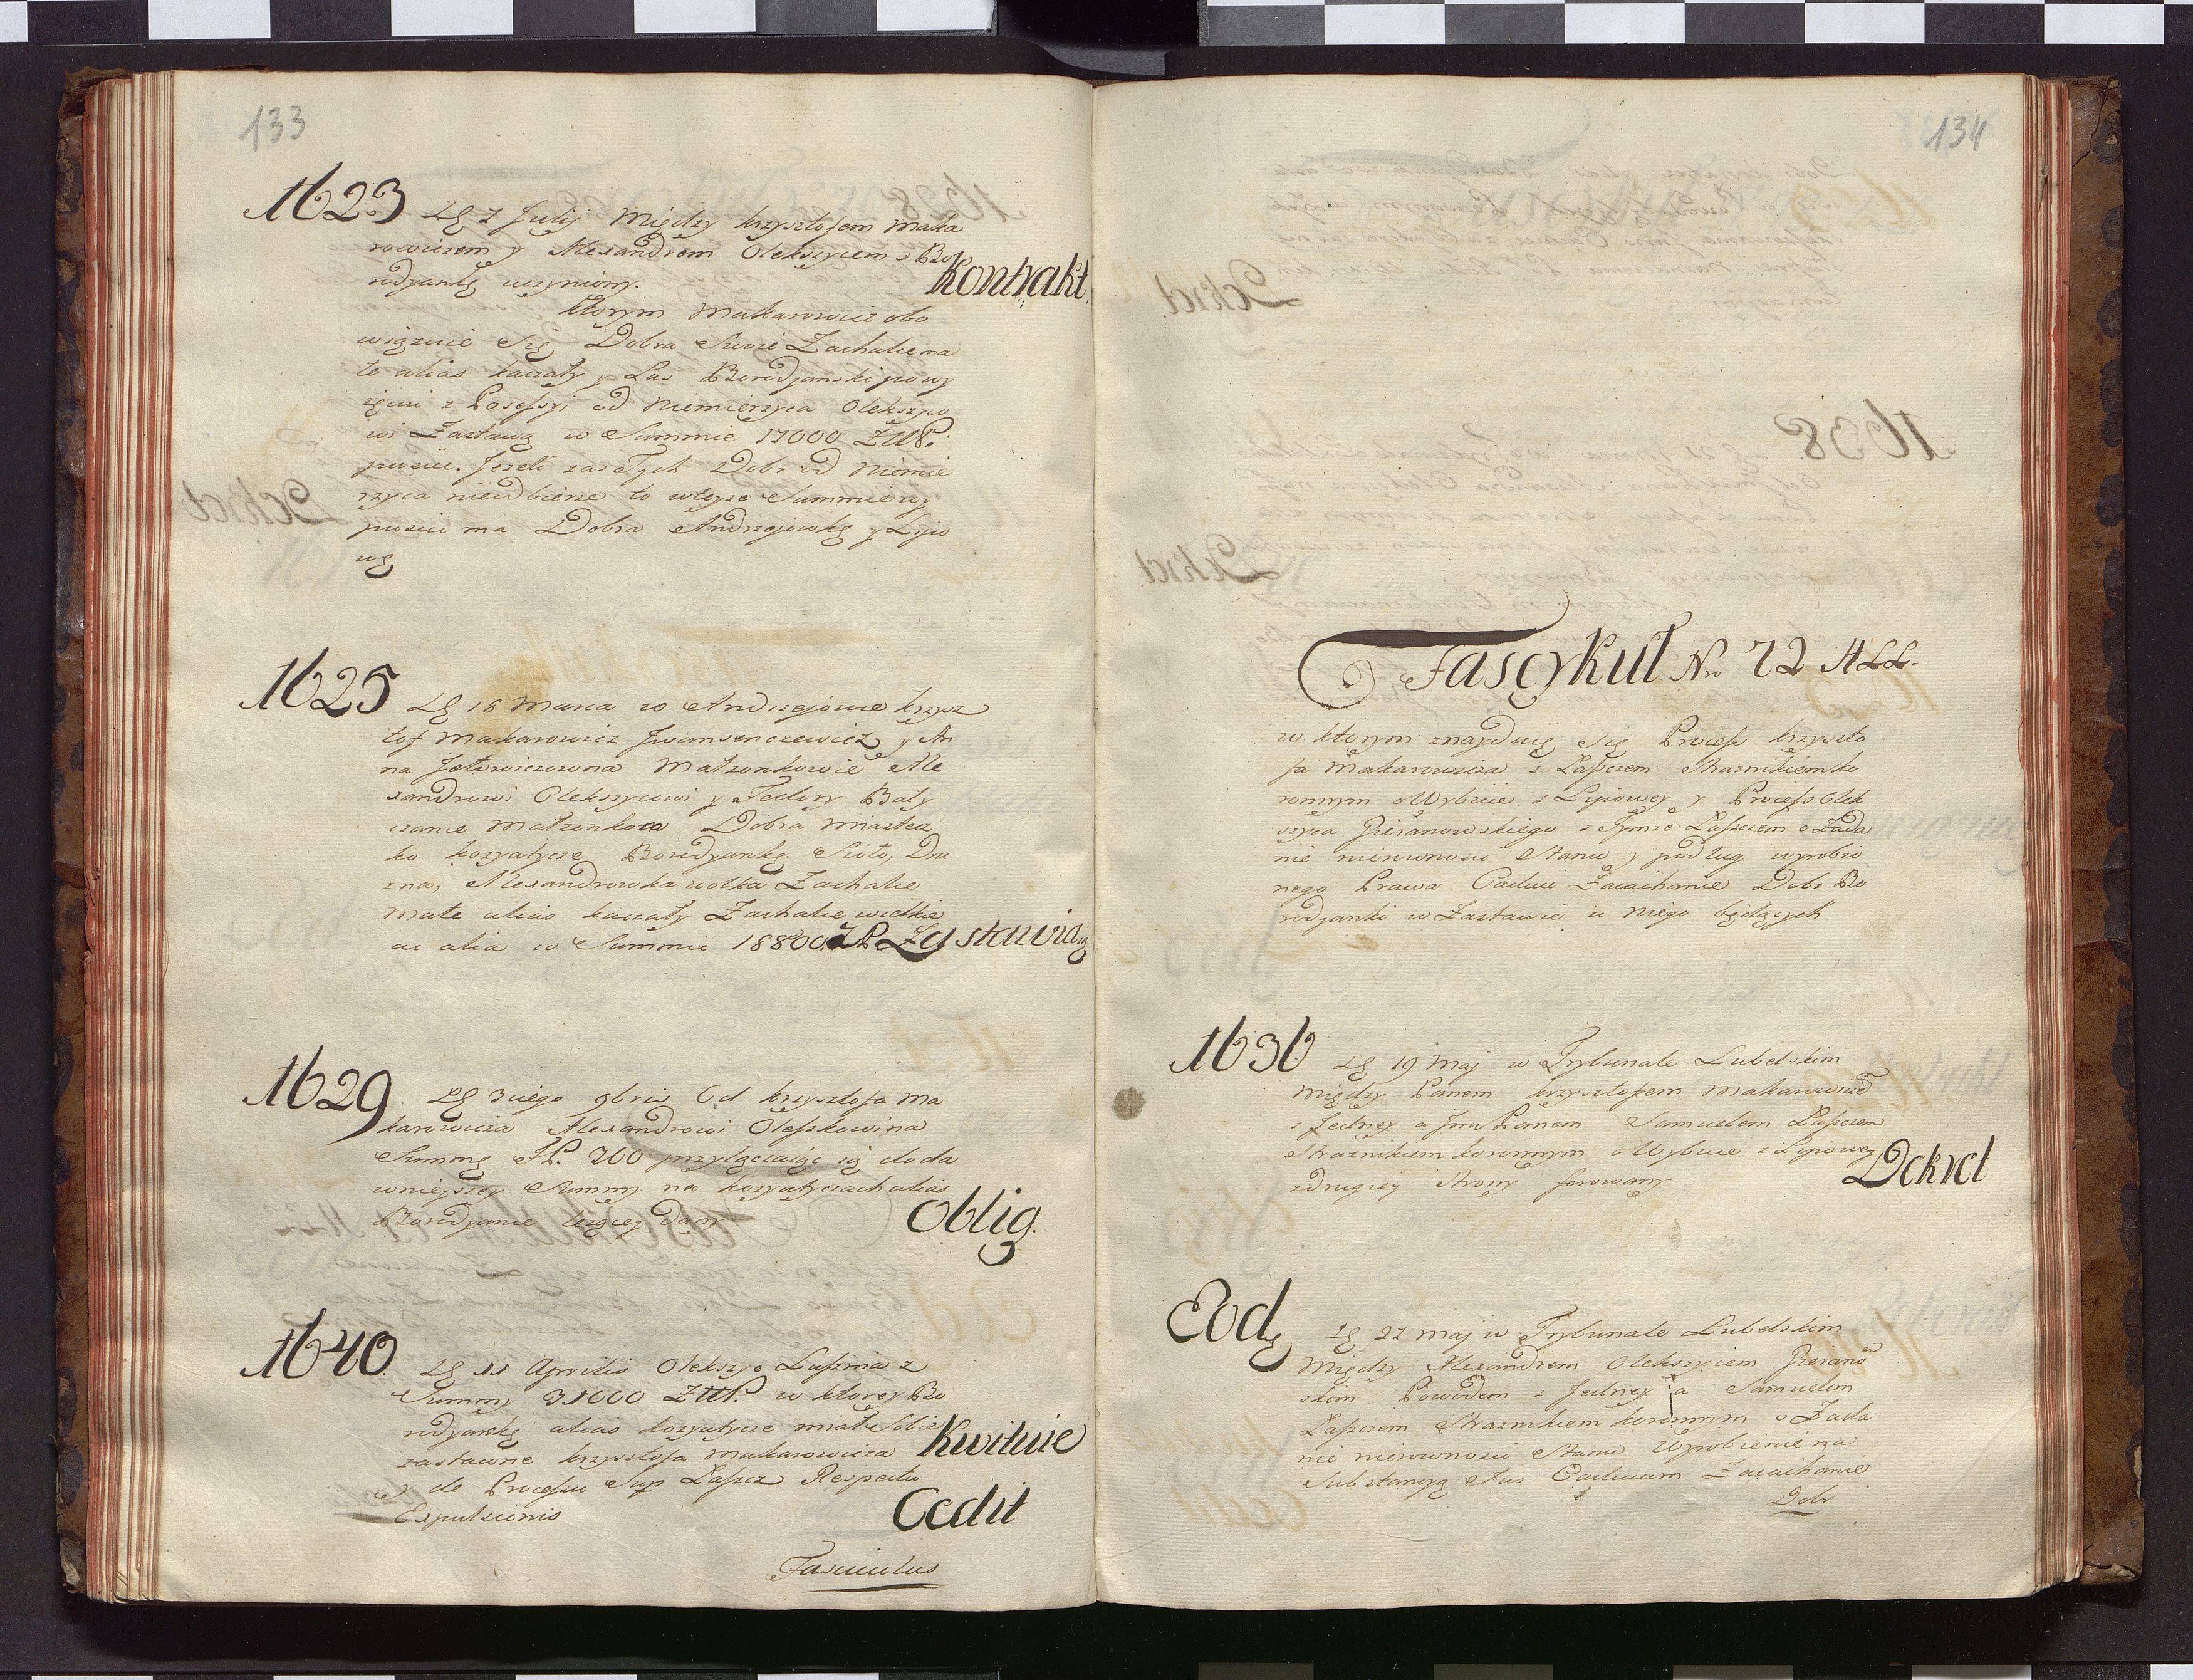 133
1623 Dź 1 Julij Między Krzysztofem Maka
rowiczem y Alexandrem Olekszycem o Bo
rodjankę uczyniony. Kontrakt.
Ktorym Makarowicz obo
wiązuie Się Dobra Swoie Zachalie ma
łe alias Kaczały y Las Borodjanski powy
zęciu z Possessyi od Niemierzyca Olekszyco
wi Zastawą w Summie 17000 ZłłP.
puscic. Jezeli zas Tych Dobr od Niemie
rzyca nieodbierze to wteyze Summie wy
puscic ma Dobra Andrzejowkę y Lipo
wę
1625 Dź 18 Marca w Andrzejowie Krzysz
tof Makarowicz Iwansenczewicz y An
na Jełowiczowna Małzonkowie Ale
xandrowi Olekszycowi y Fedory Bały
czance Małzonkom Dobra Miastecz
ko Kozyatycze Borodyankę. Sioło, Dru
zna, Alexandrowka wolka Zachalie
Małe alias Kaczały Zachalie wielkie
ac alia w Summie 18800 ZłP. Zastawiaią
1629 Dź 3ciego 9bris Od Krzysztofa Ma
karowicza Alexandrowi Olefzkowi na
Summę ZłP. 200 przyłączaiąc ią do da
wnieyszey Summy na Kozyatyczach alias
Borodyance lezącey dany Oblig.
1640. Dź 11 Aprilis Olekszyc Lufznia z
Summy 31000 ZłłP. w ktorey Bo
rodjankę alias Kozyatycze miał Sobie
zastawne Krzysztofa Makarowicza Kwituie
ac de Processu Sup Łaszcz Respectu
Expulsionis Cedit
Fasciculus
134
Fascykuł No 72 ALL.
w ktorym znayduię się Process Krzyszto
fa Makarowicza z Łaszczem Straznikiem Ko
ronnym o Wybicie z Lipowey y Process Olek
szyca Gieranowskiego z Tymze Łaszczem o Zada
nie nierownosci Stanu y podług wyrobio
nego Prawa Caduci Zaiachanie Dobr Bo
rodjanki w Zastawie u niego będących
1636 Dź 19 Maj w Trybunale Lubelskim
Między Panem Krzysztofem Makarowicze
z Jedney a Jmć Panem Samuelem Łaszczem
Straznikiem Koronnym o Wybicie z Lipowey
z drugiey Strony ferowany Dekret
Eodę Dź 27 Maj w Trybunale Lubelskim
Między Alexandrem Olekszycem Gierano
skim Powodem z Jedney a Samuelem
Łaszczem Straznikiem Koronnym o Zada
nie nierownosci Stanu Wyrobienie na
Substancyą Jus Caducum Zaiachanie
Dobr